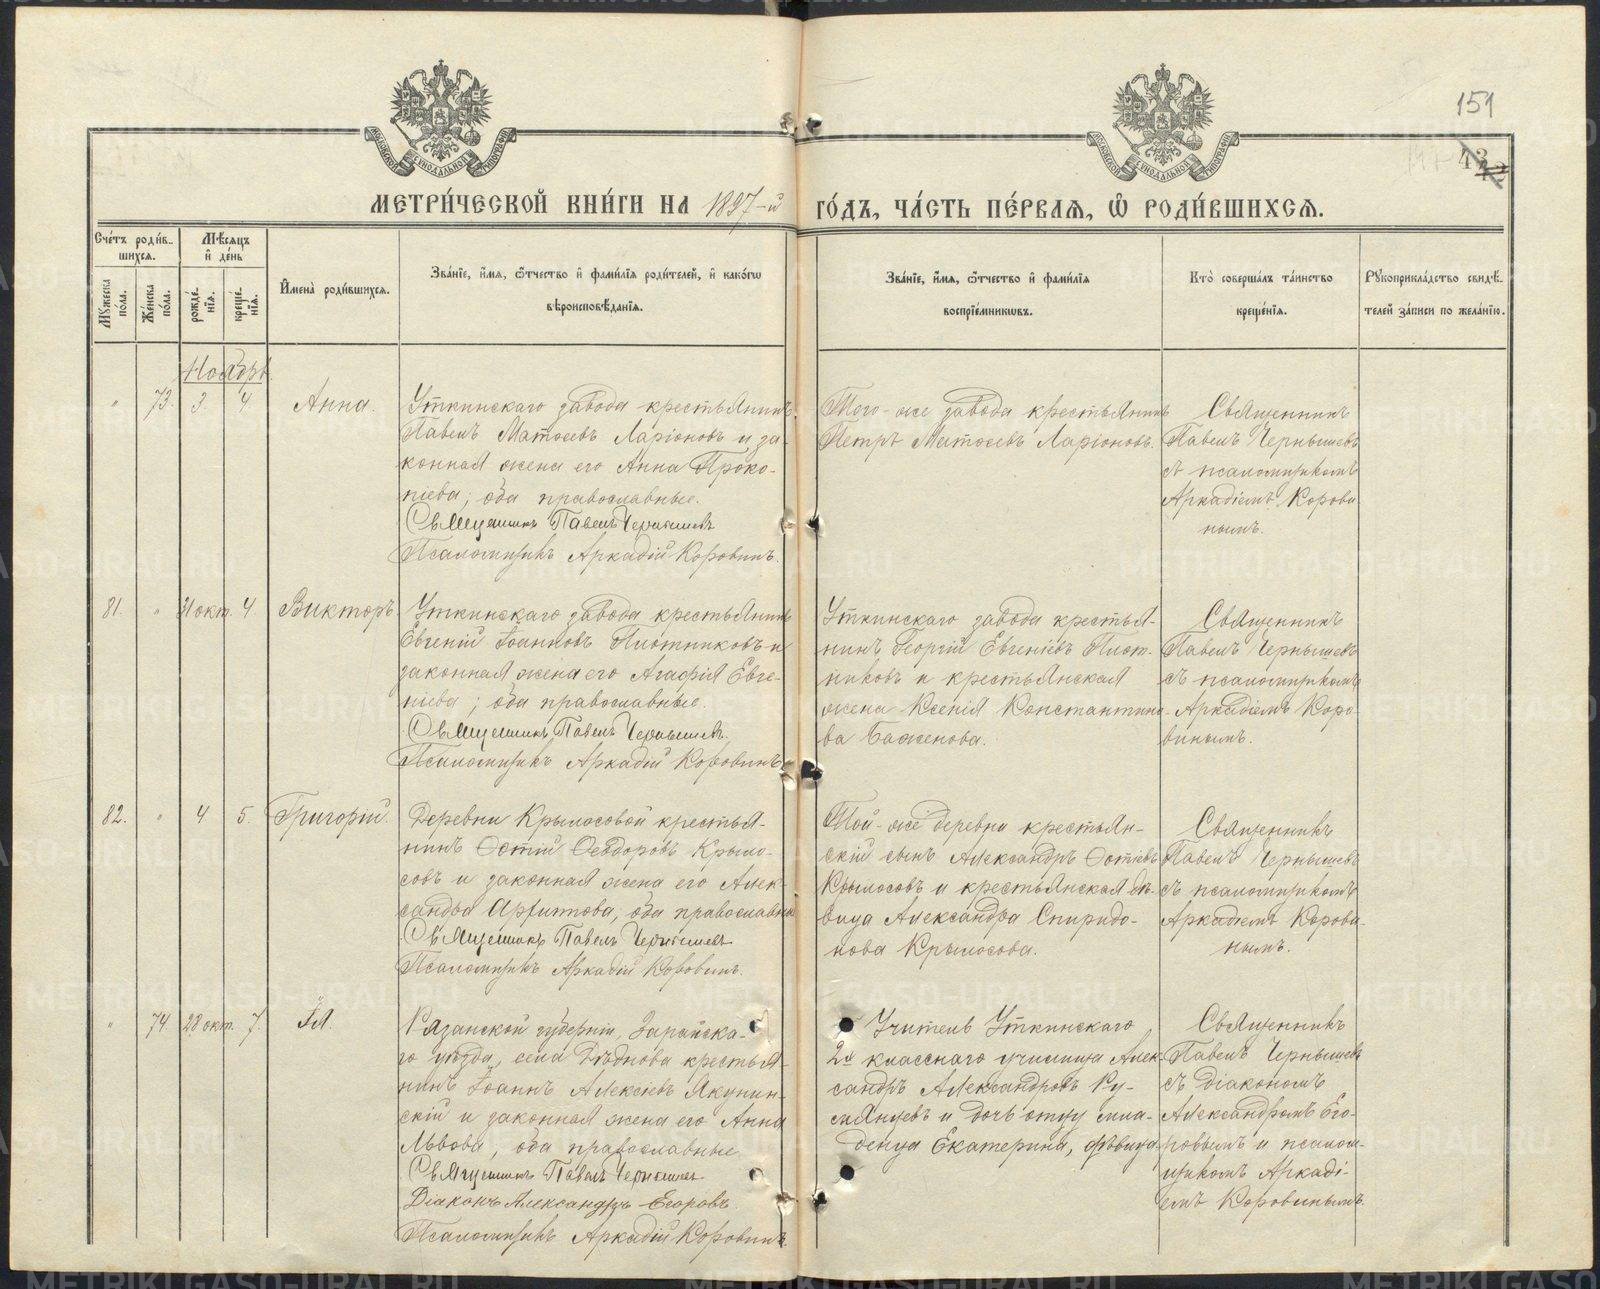 151
42
МЕТРИ́ЧЕСКОЙ КНИ́ГИ НА 1897-й ГО́ДЪ, ЧА́СТЬ ПЕ́РВАЯ, Ѡ҆ РОДИ́ВШИХСЯ.
Сче́тъ роди́в-
шихся.
Мѣ́сяцъ
и҆ де́нь
Мꙋжеска по́ла.
Же́нска по́ла.
рожде́-
нїя.
креще́-
нїя.
И҆мена̀ роди́вшихся.
Зва́нїе, и҆́мя, ѻ҆́тчество и҆ фами́лїя роди́телей, и҆ како́гѡ
вѣроисповѣ́данїя.
Зва́нїе, и҆́мя, ѻ҆́тчество и҆ фами́лїя
воспрїе́мникѡвъ.
Кто̀ соверша́лъ та́инство
креще́нїя.
Рꙋкоприкла́дство свидѣ́-
телей за́писи по жела́нїю.
Ноябрь
" 73. 3 4 Анна.
Уткинскаго завода крестьянинъ
Павелъ Матѳеевъ Ларіоновъ и за-
конная жена его Анна Проко-
піева; оба православные.
Священникъ Павелъ Чернышевъ
Псаломщикъ Аркадій Коровинъ.
Того-же завода крестьянинъ
Петръ Матѳеевъ Ларіоновъ.
Священникъ
Павелъ Чернышевъ
съ псаломщикомъ
Аркадіемъ Корови-
нымъ.
81. " 31 окт. 4. Викторъ
Уткинскаго завода крестьянинъ
Евгеній Іоанновъ Плотниковъ и
законная жена его Агафія Евге-
ніева; оба православные.
Священникъ Павелъ Чернышевъ.
Псаломщикъ Аркадій Коровинъ
Уткинскаго завода крестья-
нинъ Георгій Евгеніевъ Плот-
никовъ и крестьянская
жена Ксенія Константино-
ва Баженова.
Священникъ
Павелъ Чернышевъ
съ псаломщикомъ
Аркадіемъ Коро-
винымъ.
82. " 4 5. Григорій.
Деревни Крылосовой крестья-
нинъ Ѳотій Ѳеодоровъ Крыло-
совъ и законная жена его Алек-
сандра Архипова, оба православны
Священникъ Павелъ Чернышевъ
Псаломщикъ Аркадій Коровинъ.
Той-же деревни крестьян-
скій сынъ Александръ Ѳотіевъ
Крылосовъ и крестьянская дѣ-
вица Александра Спиридо-
нова Крылосова.
Священникъ
Павелъ Чернышевъ
съ псаломщикомъ
Аркадіемъ Корови-
нымъ.
" 74. 28 окт. 7. Ія.
Рязанской губерніи, Зарайска-
го уѣзда, села Дѣднова крестья-
нинъ Іоаннъ Алексѣевъ Якунин-
скій и законная жена его Анна
Львова, оба православные
Священникъ Павелъ Чернышевъ
Діаконъ Александръ Егоровъ
Псаломщикъ Аркадій Коровинъ.
Учитель Уткинскаго
2х класснаго училища Алек-
сандръ Александровъ Ру-
мянцевъ и дочь отцу мла-
денца Екатерина, дѣвица.
Священникъ
Павелъ Чернышевъ
съ діакономъ
Александромъ Его-
ровымъ и псалом-
щикомъ Аркаді-
емъ Коровинымъ.
METRIKI.GASO-URAL.RU